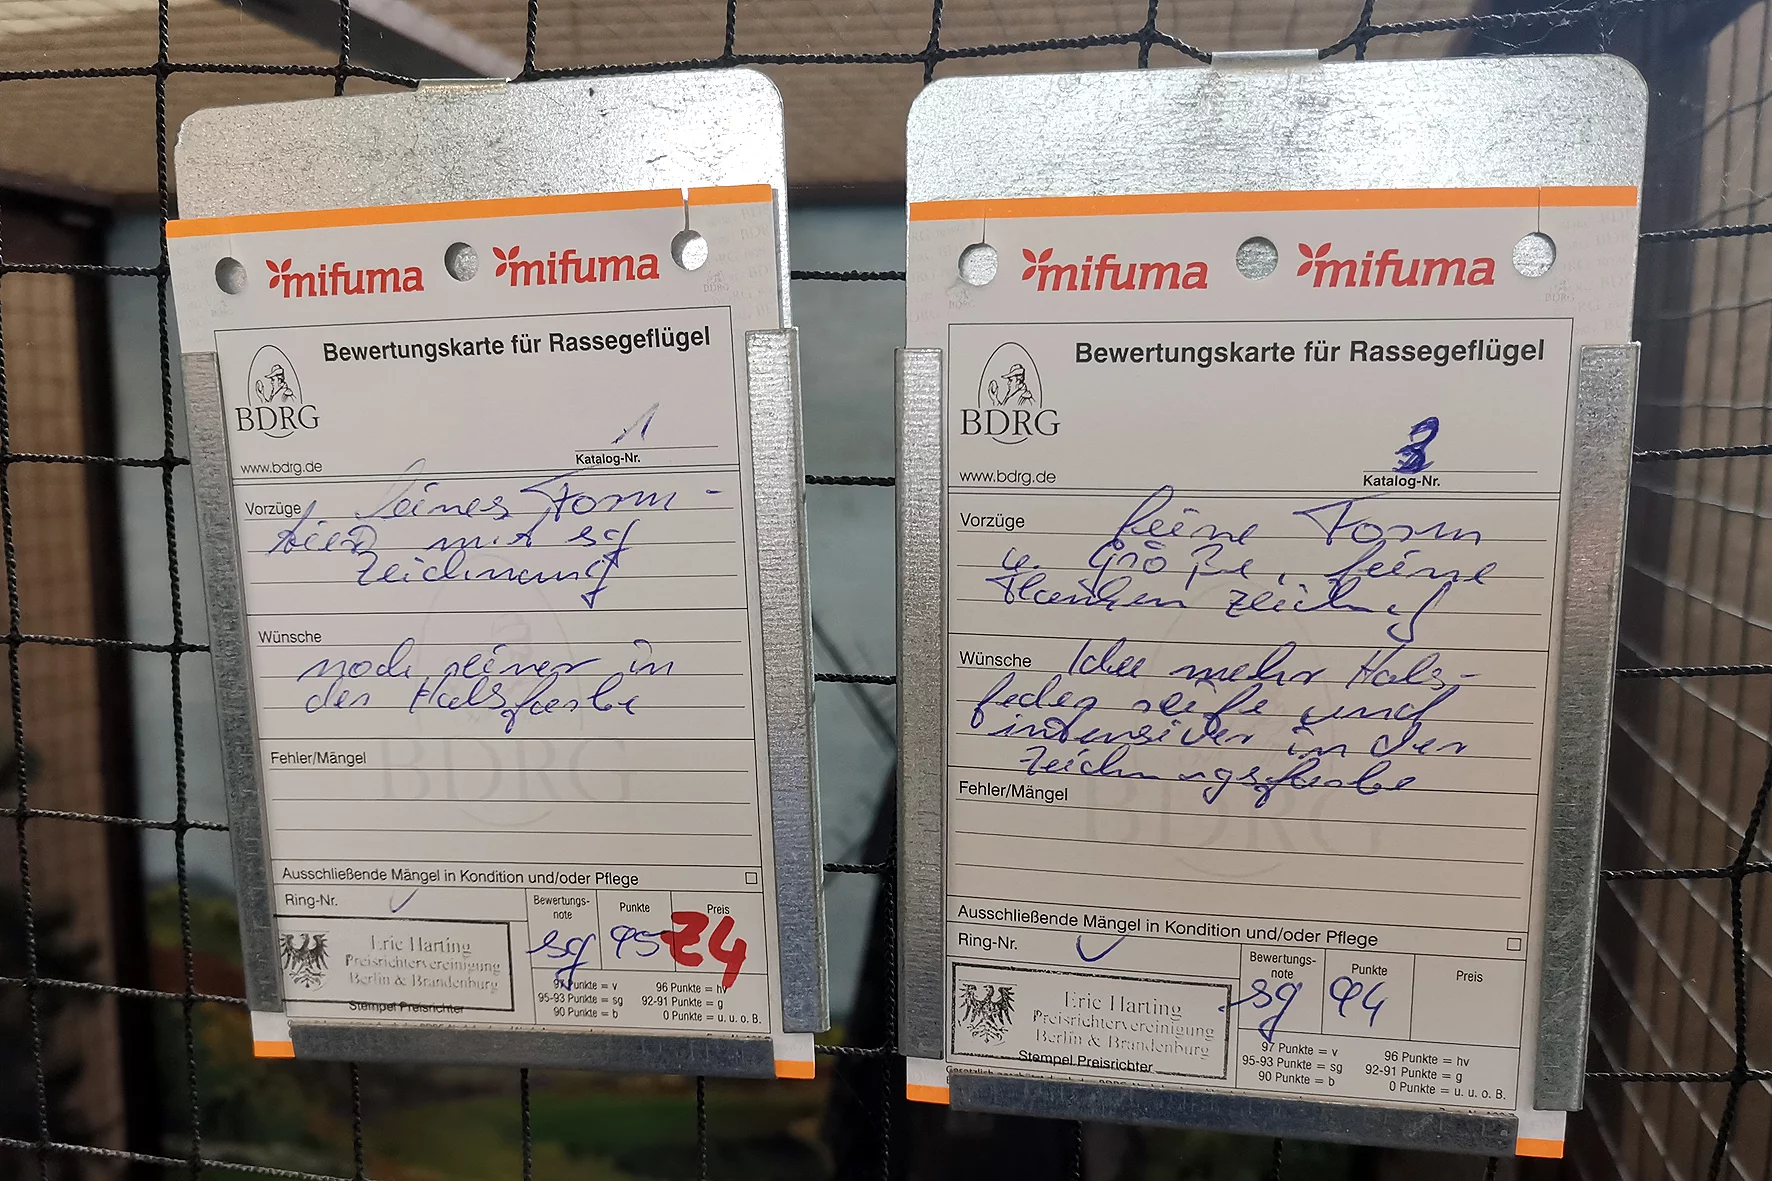 mifuma mifuma
Bewertungskarte für Rassegeflügel
BDRG
www.bdrg.de
1
Katalog-Nr.
Vorzüge feines Form-
tier mit sg
Zeichnung
Wünsche
noch reiner in
der Halsfarbe
Fehler/Mängel
BDRG
Ausschließende Mängel in Kondition und/oder Pflege
Ring-Nr.
Bewertungs-
note
Punkte
Preis
sg 95 Z4
Eric Harting
Preisrichtervereinigung
Berlin & Brandenburg
Stempel Preisrichter
97 Punkte = v 96 Punkte = hv
95-93 Punkte = sg 92-91 Punkte = g
90 Punkte = b 0 Punkte = u. u. o. B.
mifuma mifuma
Bewertungskarte für Rassegeflügel
BDRG
www.bdrg.de
Katalog-Nr.
Vorzüge feine Form
u. Größe, feine
Flanken zeichnung
Wünsche Idee mehr Hals-
feder reife und
intensiver in der
Zeichnungsfarbe
Fehler/Mängel
BDRG
Ausschließende Mängel in Kondition und/oder Pflege
Ring-Nr.
Bewertungs-
note
Punkte
Preis
sg 94
Eric Harting
Preisrichtervereinigung
Berlin & Brandenburg
Stempel Preisrichter
97 Punkte = v 96 Punkte = hv
95-93 Punkte = sg 92-91 Punkte = g
90 Punkte = b 0 Punkte = u. u. o. B.